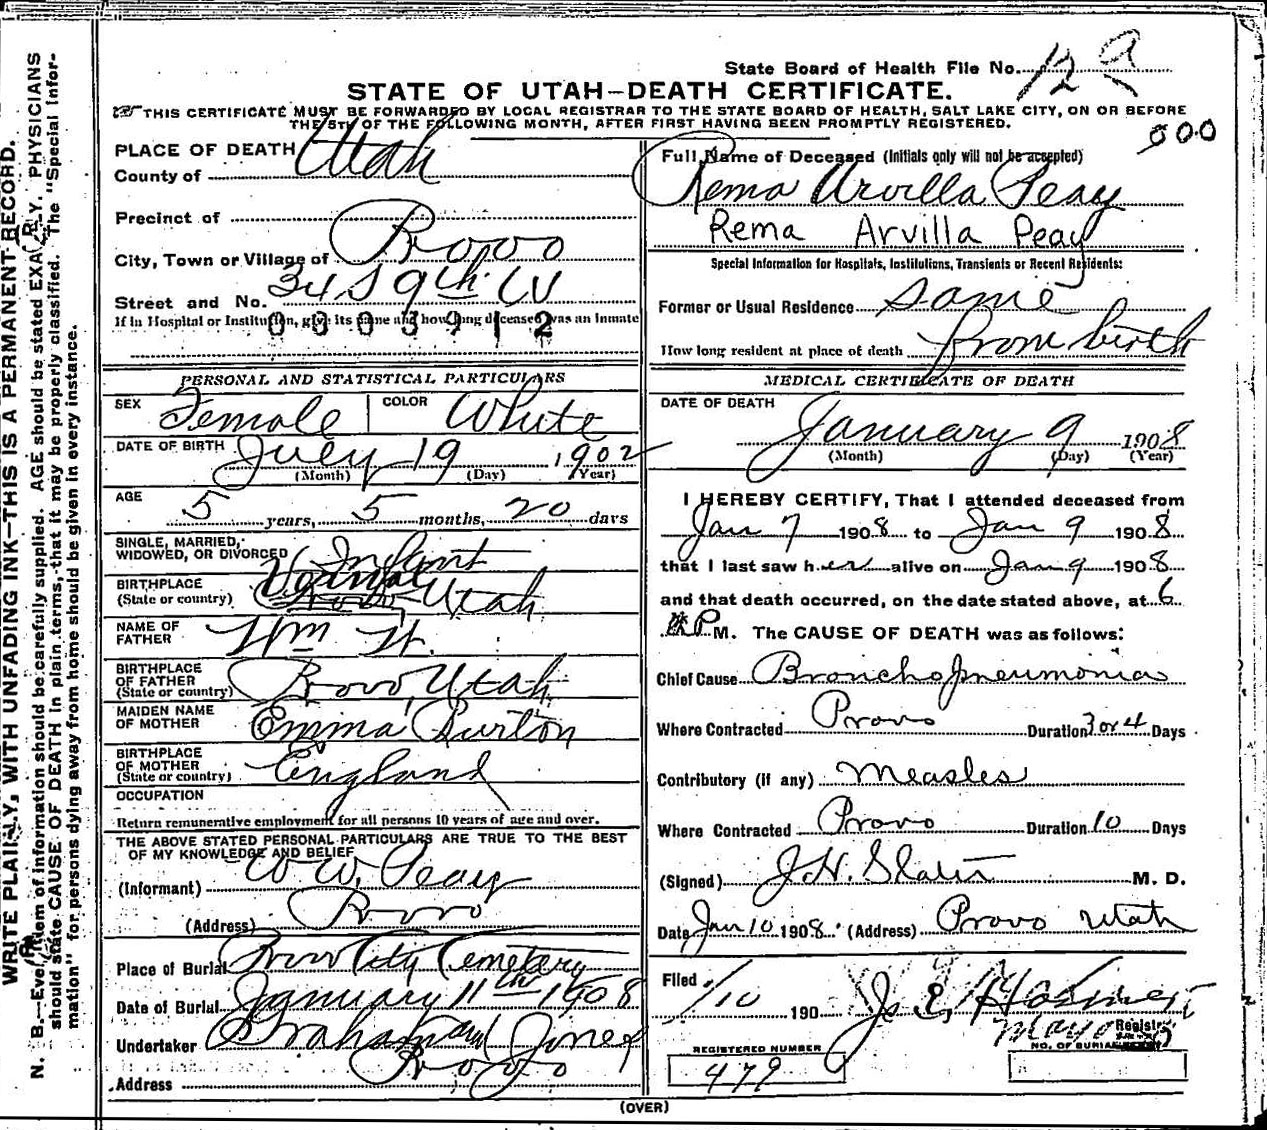 State Board of Health File No. 12 a
STATE OF UTAH—DEATH CERTIFICATE.
THIS CERTIFICATE MUST BE FORWARDED BY LOCAL REGISTRAR TO THE STATE BOARD OF HEALTH, SALT LAKE CITY, ON OR BEFORE
THE 5TH OF THE FOLLOWING MONTH, AFTER FIRST HAVING BEEN PROMPTLY REGISTERED.
000
PLACE OF DEATH
County of Utah
Precinct of
City, Town or Village of Provo
Street and No. 34 S 9th W
If in Hospital or Institution, give its name and how long deceased was an inmate
0803912
PERSONAL AND STATISTICAL PARTICULARS
SEX Female COLOR White
DATE OF BIRTH July 19 1902
(Month) (Day) (Year)
AGE
5 years, 5 months, 20 days
SINGLE, MARRIED,
WIDOWED, OR DIVORCED Infant
BIRTHPLACE Vernal
(State or country) Provo Utah
NAME OF
FATHER Wm W.
BIRTHPLACE
OF FATHER
(State or country) Provo, Utah
MAIDEN NAME
OF MOTHER Emma Burton
BIRTHPLACE
OF MOTHER
(State or country) England
OCCUPATION
Return remunerative employment for all persons 10 years of age and over.
THE ABOVE STATED PERSONAL PARTICULARS ARE TRUE TO THE BEST
OF MY KNOWLEDGE AND BELIEF
(Informant) W W. Peay
(Address) Provo
Place of Burial Provo City Cemetery
Date of Burial January 11th 1908
Undertaker Graham and Jones
Address Provo
Full Name of Deceased (Initials only will not be accepted)
Rema Arvilla Peay
Rema Arvilla Peay
Special Information for Hospitals, Institutions, Transients or Recent Residents:
Former or Usual Residence same
How long resident at place of death from birth
MEDICAL CERTIFICATE OF DEATH
DATE OF DEATH
January 9 1908
(Month) (Day) (Year)
I HEREBY CERTIFY, That I attended deceased from
Jan 7 1908 to Jan 9 1908
that I last saw her alive on Jan 9 1908
and that death occurred, on the date stated above, at 6
P M. The CAUSE OF DEATH was as follows:
Chief Cause Bronchopneumonia
Where Contracted Provo Duration 3 or 4 Days
Contributory (if any) Measles
Where Contracted Provo Duration 10 Days
(Signed) J.H. Slater M. D.
Date Jan 10 1908. (Address) Provo Utah
Filed 1/10 190
Registrar
REGISTERED NUMBER
479
NO. OF BURIAL
(OVER)
WRITE PLAINLY, WITH UNFADING INK—THIS IS A PERMANENT RECORD.
N. B.—Every item of information should be carefully supplied. AGE should be stated EXACTLY. PHYSICIANS
should state CAUSE OF DEATH in plain terms, that it may be properly classified. The "Special Infor-
mation" for persons dying away from home should be given in every instance.